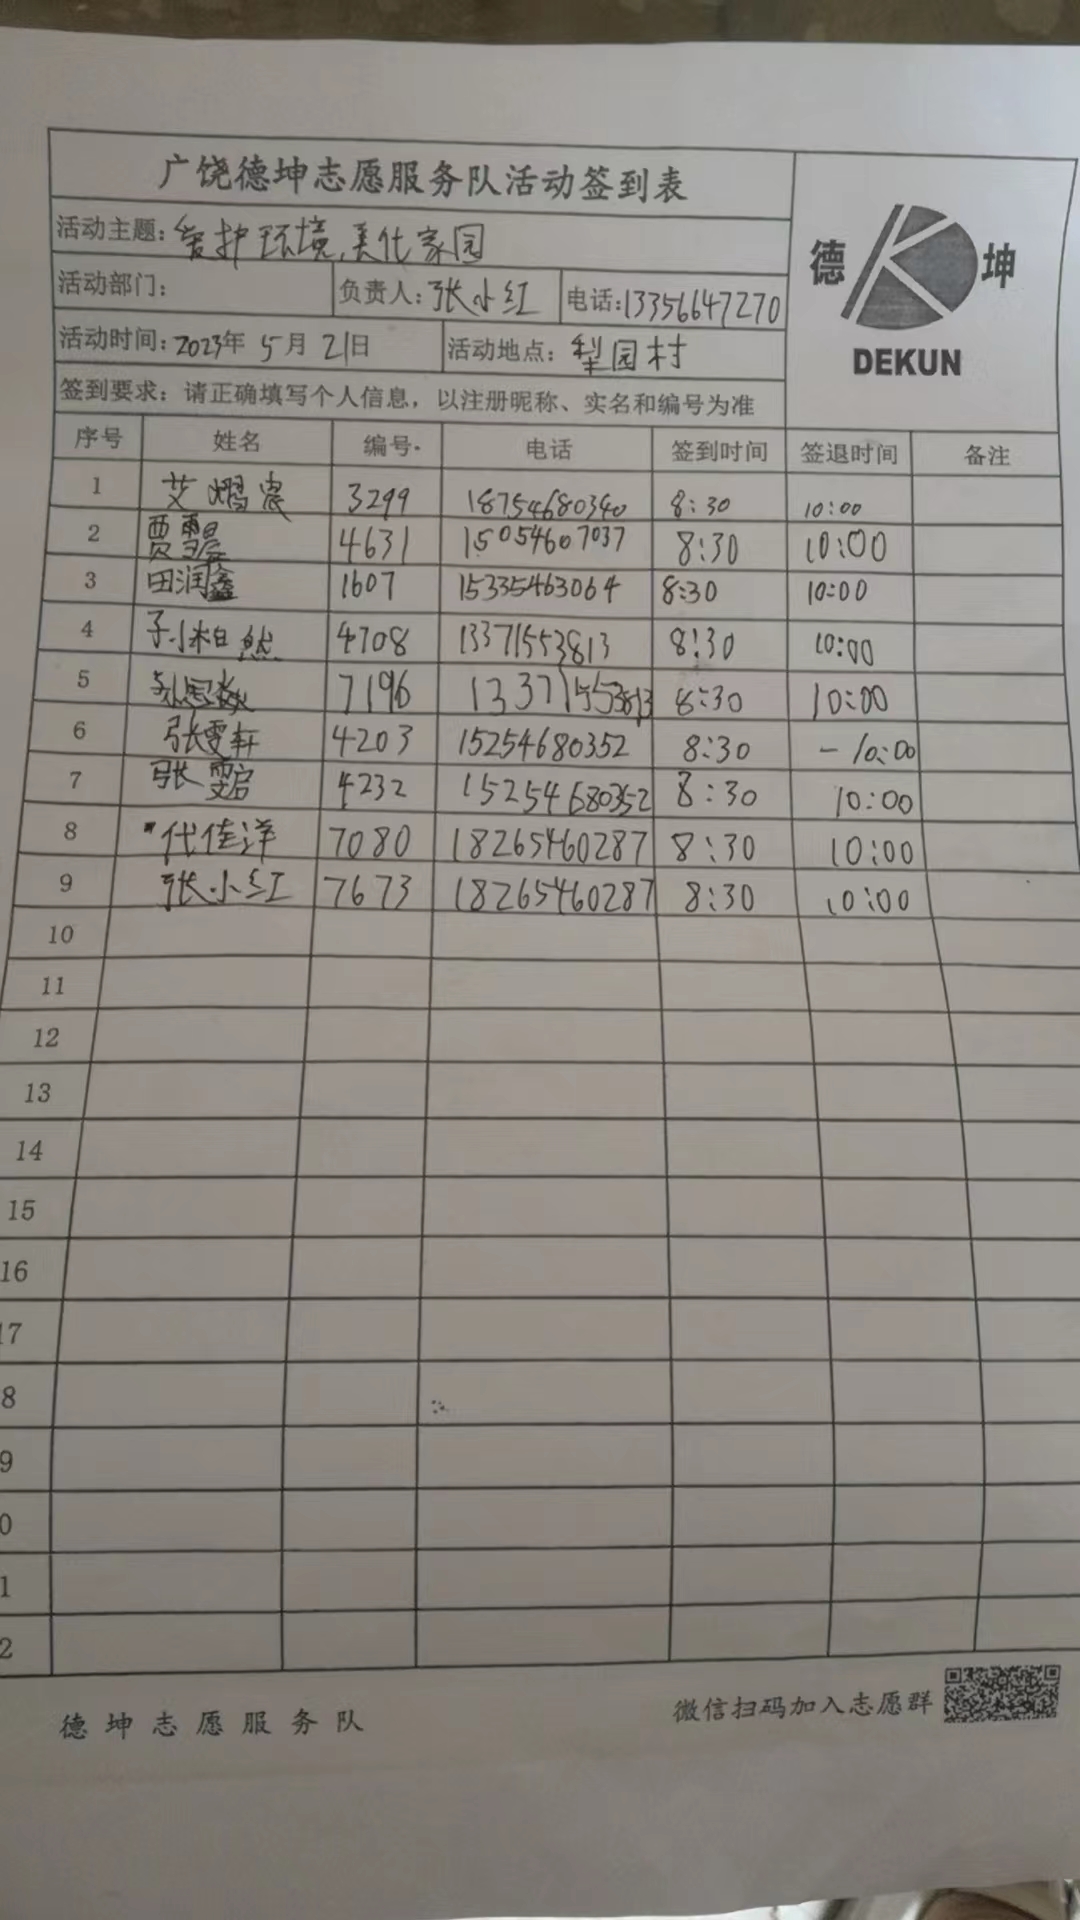 广饶德坤志愿服务队活动签到表
德 K 坤
DEKUN
活动主题: 爱护环境,美化家园
活动部门: 负责人: 张小红 电话: 13356647270
活动时间: 2023年 5月 21日 活动地点: 梨园村
签到要求: 请正确填写个人信息，以注册昵称、实名和编号为准
序号 姓名 编号· 电话 签到时间 签退时间 备注
1 艾 3299 18754680340 8:30 10:00
2 贾雪晨 4631 15054607037 8:30 10:00
3 田润鑫 1607 15335463064 8:30 10:00
4 孙柏然 4708 13371553813 8:30 10:00
5 7196 13371553813 8:30 10:00
6 张雯轩 4203 15254680352 8:30 - 10:00
7 张 4232 15254680352 8:30 10:00
8 代佳洋 7080 18265460287 8:30 10:00
9 张小红 7673 18265460287 8:30 10:00
10
11
12
13
14
15
16
17
8
9
0
1
2
德坤志愿服务队
微信扫码加入志愿群